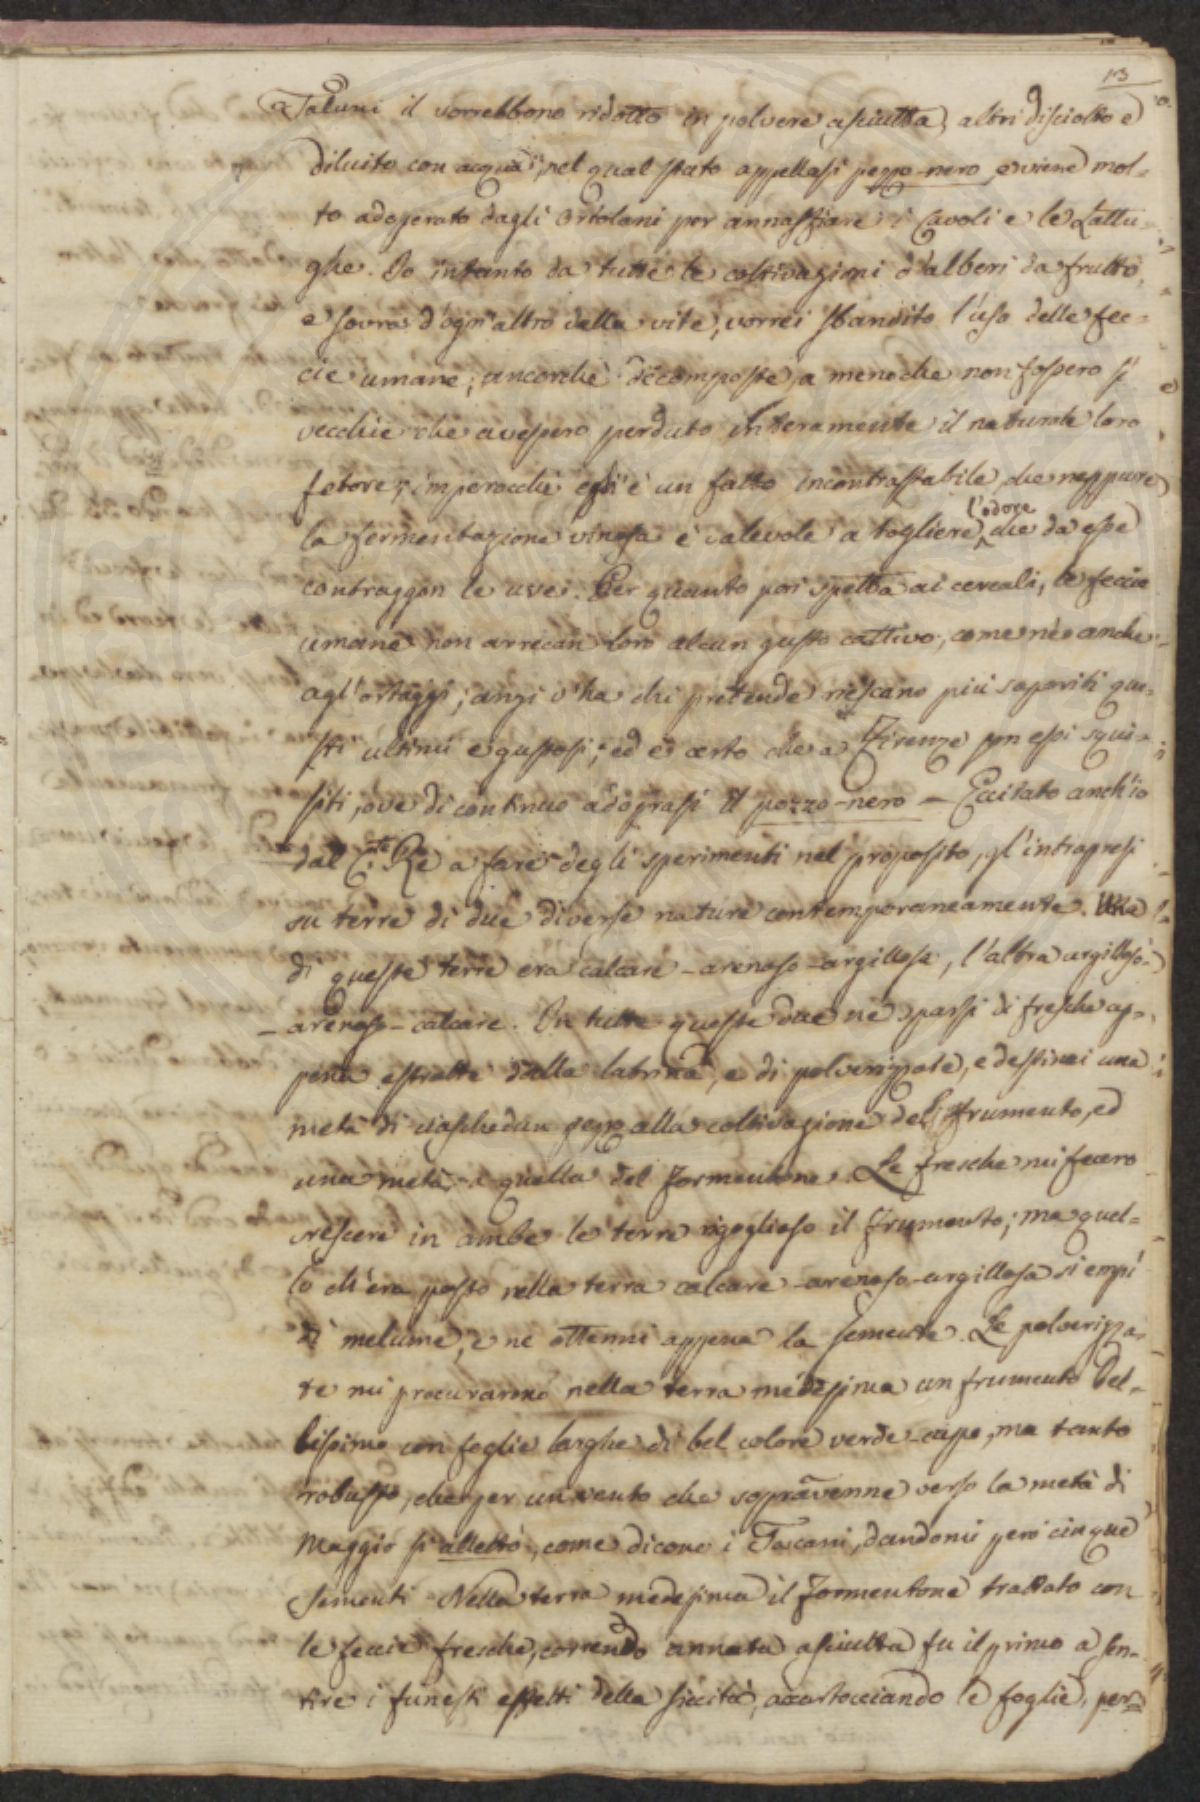 13
Taluni il vorrebbono ridotto in polvere asciutta, altri disciolto e
diluito con acqua; nel qual stato appellasi pozzo-nero, e viene mol-
to adoperato dagli Ortolani per annaffiare i Cavoli e le Lattu-
ghe. Io intanto da tutte le coltivazioni d'alberi da frutto,
e sovra d'ogn'altro dalla vite, vorrei sbandito l'uso delle fec-
cie umane, ancorchè decomposte, a meno che non fossero sì
vecchie che avessero perduto interamente il naturale loro
fetore; imperocchè egli è un fatto incontrastabile, che neppure
la fermentazione vinosa è valevole a togliere l'odore che da esse
contraggon le uve. Per quanto poi spetta ai cereali, le feccie
umane non arrecan loro alcun gusto cattivo, come nè anche
agl'ortaggi; anzi v'ha chi pretende riescano più saporiti que-
sti ultimi e gustosi; ed è certo che a Firenze son essi squi-
siti, ove di continuo adoprasi il pozzo-nero — Eccitato anch'io
dal C.te Re a fare degli sperimenti nel proposito, gl'intrapresi
su terre di due diverse nature contemporaneamente. Una
di queste terre era calcare-arenoso-argillosa, l'altra argilloso-
-arenoso-calcare. In tutte queste due ne sparsi di fresche ap-
pena estratte dalla latrina, e di polverizzate, e destinai una
metà di ciaschedun pezzo alla coltivazione del frumento, ed
una metà a quella del formentone. Le fresche mi fecero
crescere in ambe le terre rigoglioso il frumento; ma quel-
lo ch'era posto nella terra calcare-arenoso-argillosa si empì
di melume, e ne ottenni appena la semente. Le polverizza-
te mi procurarono nella terra medesima un frumento bel-
lissimo con foglie larghe di bel colore verde-cupo, ma tanto
robusto, che per un vento che sopravvenne verso la metà di
Maggio si allettò, come dicono i Toscani, dandomi però cinque
sementi. Nella terra medesima il formentone trattato con
le feccie fresche, correndo annata asciutta fu il primo a sen-
tire i funesti effetti della siccità, accartocciando le foglie, per-